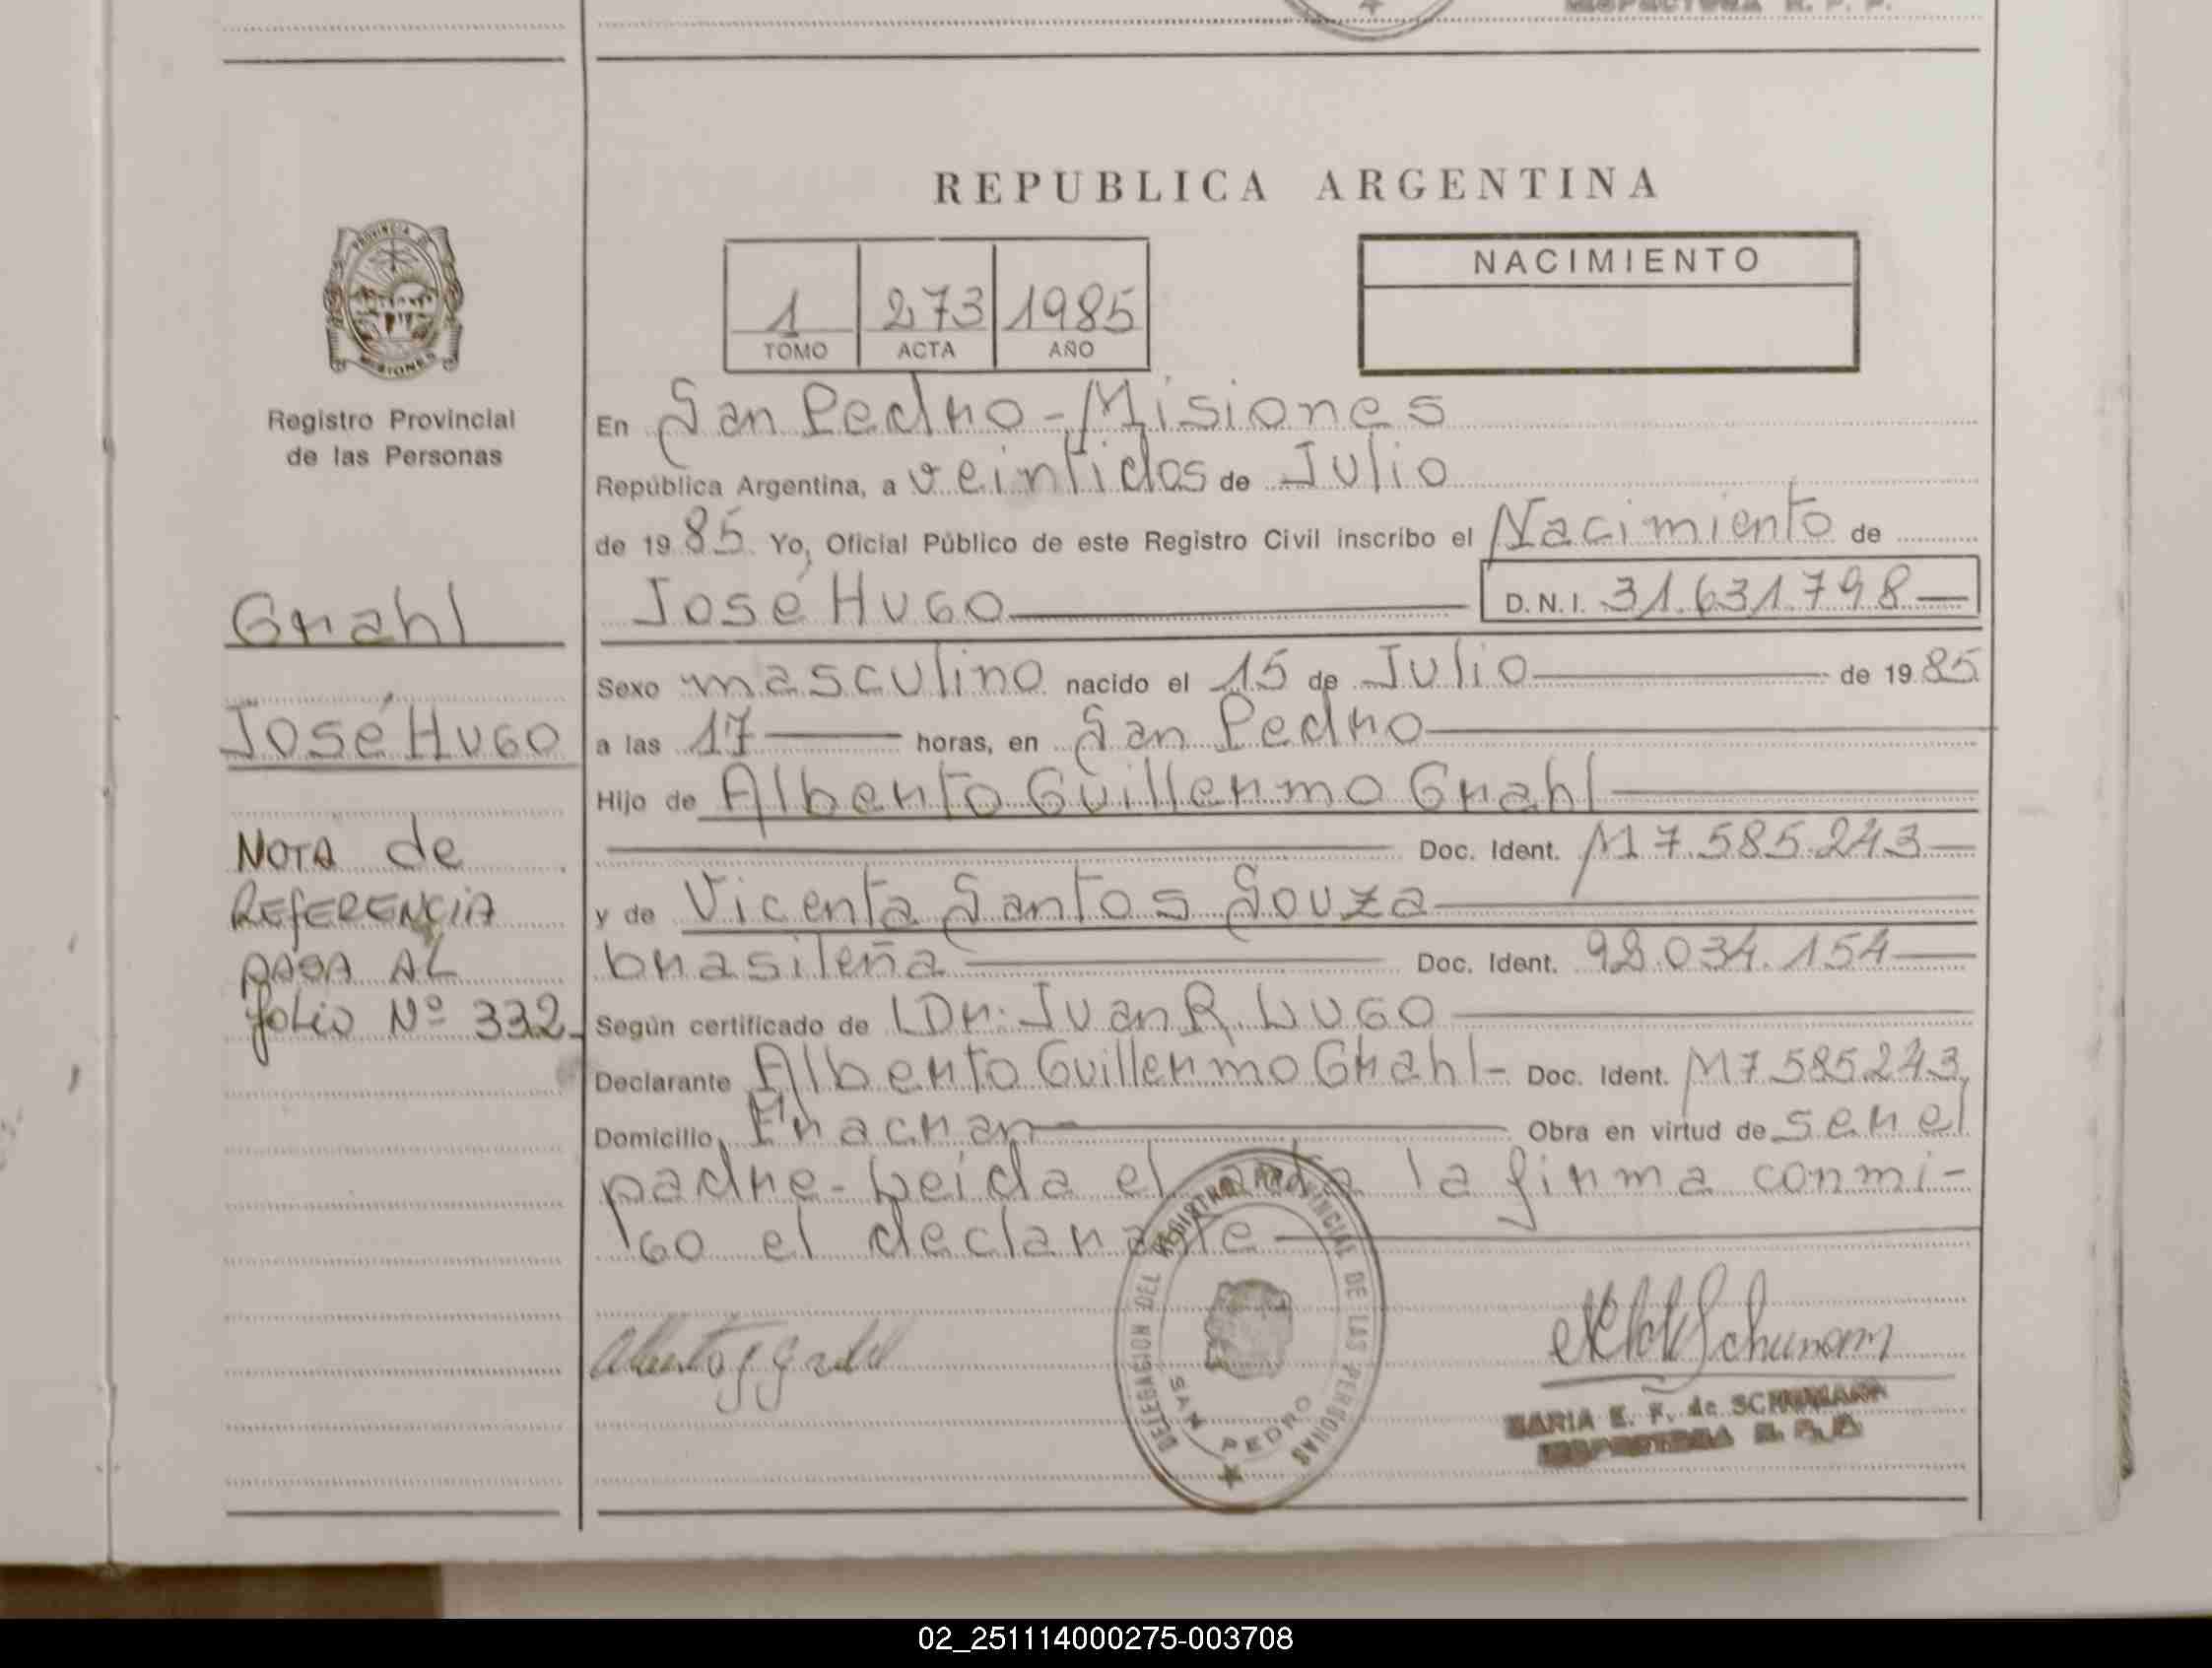 REPUBLICA ARGENTINA
NACIMIENTO
1 273 1985
TOMO ACTA AÑO
PROVINCIA DE MISIONES
Registro Provincial
de las Personas
Grahl
José Hugo
NOTA de
REFERENCIA
PASA AL
folio Nº 332
En San Pedro - Misiones
República Argentina, a veintidos de Julio
de 1985 Yo, Oficial Público de este Registro Civil inscribo el Nacimiento de
José Hugo D.N.I. 31.631.798
Sexo masculino nacido el 15 de Julio de 1985
a las 17 horas, en San Pedro
Hijo de Alberto Guillermo Grahl
Doc. Ident. M7.585.243
y de Vicenta Santos Souza
brasileña Doc. Ident. 92.034.154
Según certificado de Dr. Juan R. Lugo
Declarante Alberto Guillermo Grahl - Doc. Ident. M7.585.243
Domicilio Fracran Obra en virtud de ser el
padre - Leida el acta la firma conmi-
go el declarante
DELEGACION DEL REGISTRO PROVINCIAL DE LAS PERSONAS
SAN PEDRO
MARIA E. F. de SCHUMANN
INSPECTORA R. P. P.
02_251114000275-003708